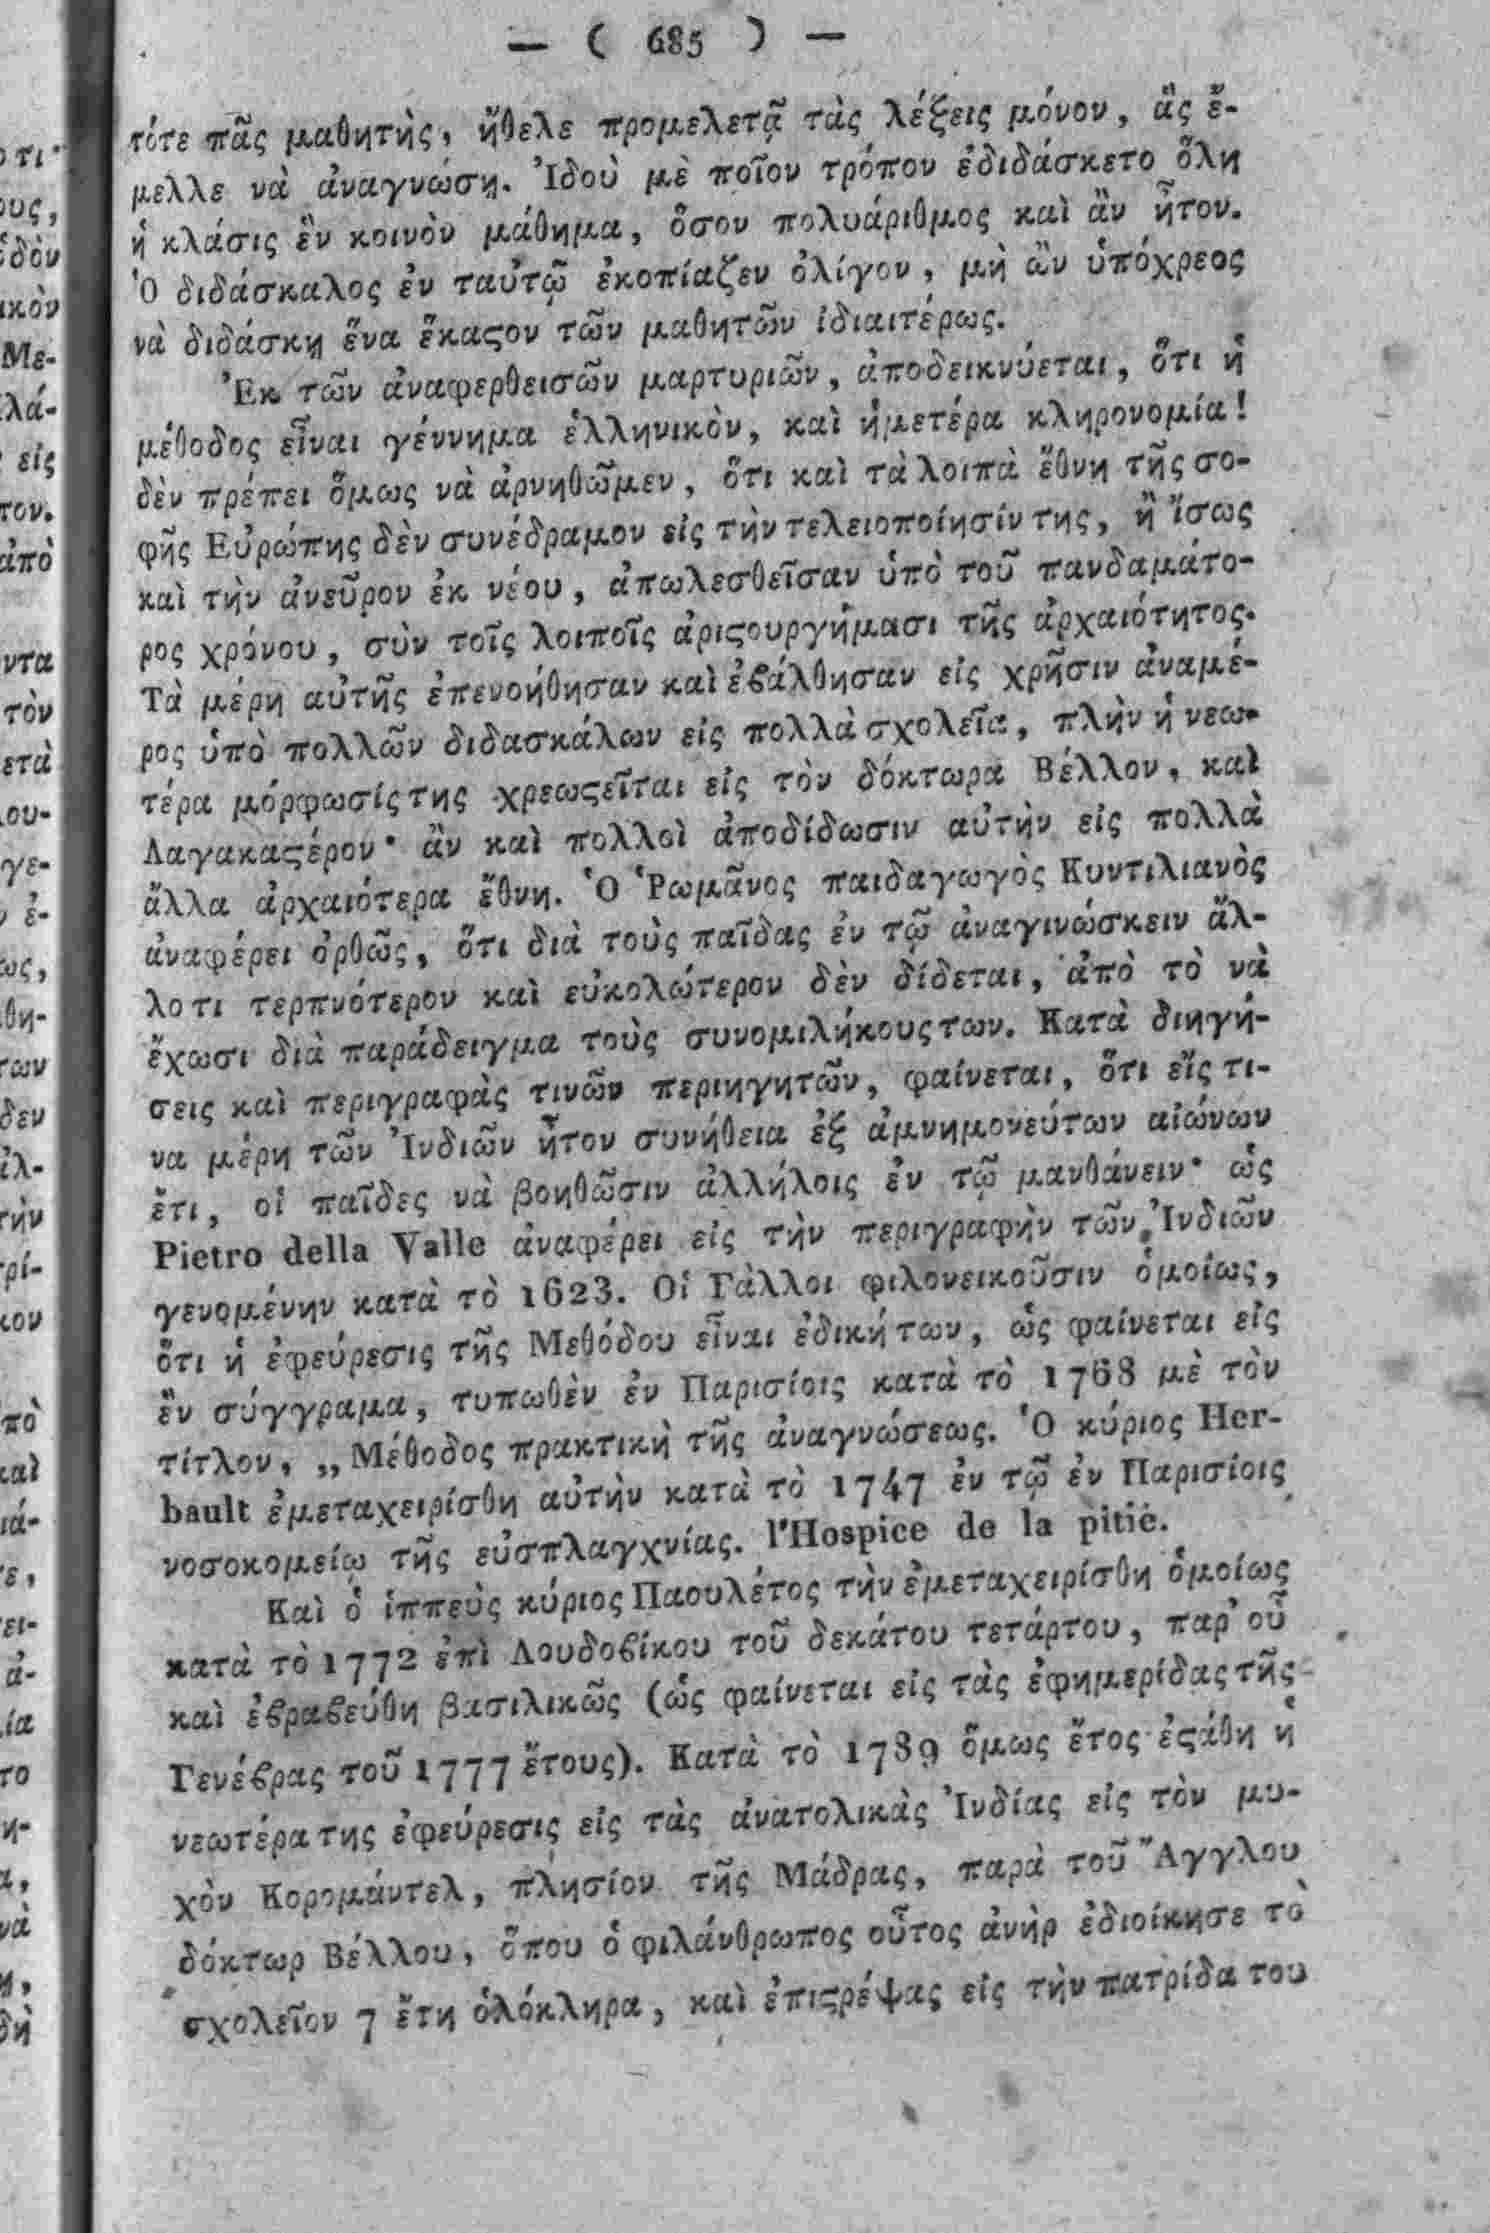 — ( 685 ) —
τότε πᾶς μαθητὴς, ἤθελε προμελετᾷ τὰς λέξεις μόνον, ἃς ἔ-
μελλε νὰ ἀναγνώσῃ. Ἰδοὺ μὲ ποῖον τρόπον ἐδιδάσκετο ὅλη
ἡ κλάσις ἓν κοινὸν μάθημα, ὅσον πολυάριθμος καὶ ἂν ἦτον.
Ὁ διδάσκαλος ἐν ταὐτῷ ἐκοπίαζεν ὀλίγον, μὴ ὢν ὑπόχρεος
νὰ διδάσκῃ ἕνα ἕκαϛον τῶν μαθητῶν ἰδιαιτέρως.
Ἐκ τῶν ἀναφερθεισῶν μαρτυριῶν, ἀποδεικνύεται, ὅτι ἡ
μέθοδος εἶναι γέννημα ἑλληνικὸν, καὶ ἡμετέρα κληρονομία!
δὲν πρέπει ὅμως νὰ ἀρνηθῶμεν, ὅτι καὶ τὰ λοιπὰ ἔθνη τῆς σο-
φῆς Εὐρώπης δὲν συνέδραμον εἰς τὴν τελειοποίησίν της, ἢ ἴσως
καὶ τὴν ἀνεῦρον ἐκ νέου, ἀπωλεσθεῖσαν ὑπὸ τοῦ πανδαμάτο-
ρος χρόνου, σὺν τοῖς λοιποῖς ἀριϛουργήμασι τῆς ἀρχαιότητος.
Τὰ μέρη αὐτῆς ἐπενοήθησαν καὶ ἐϐάλθησαν εἰς χρῆσιν ἀναμέ-
ρος ὑπὸ πολλῶν διδασκάλων εἰς πολλὰ σχολεῖα, πλὴν ἡ νεω-
τέρα μόρφωσίς της χρεωϛεῖται εἰς τὸν δόκτωρα Βέλλον, καὶ
Λαγακαϛέρον· ἂν καὶ πολλοὶ ἀποδίδωσιν αὐτὴν εἰς πολλὰ
ἄλλα ἀρχαιότερα ἔθνη. Ὁ Ῥωμᾶνος παιδαγωγὸς Κυντιλιανὸς
ἀναφέρει ὀρθῶς, ὅτι διὰ τοὺς παῖδας ἐν τῷ ἀναγινώσκειν ἄλ-
λο τι τερπνότερον καὶ εὐκολώτερον δὲν δίδεται, ἀπὸ τὸ νὰ
ἔχωσι διὰ παράδειγμα τοὺς συνομιλήκους των. Κατὰ διηγή-
σεις καὶ περιγραφὰς τινῶν περιηγητῶν, φαίνεται, ὅτι εἴς τι-
να μέρη τῶν Ἰνδιῶν ἦτον συνήθεια ἐξ ἀμνημονεύτων αἰώνων
ἔτι, οἱ παῖδες νὰ βοηθῶσιν ἀλλήλοις ἐν τῷ μανθάνειν· ὡς
Pietro della Valle ἀναφέρει εἰς τὴν περιγραφὴν τῶν Ἰνδιῶν
γενομένην κατὰ τὸ 1623. Οἱ Γάλλοι φιλονεικοῦσιν ὁμοίως,
ὅτι ἡ ἐφεύρεσις τῆς Μεθόδου εἶναι ἐδική των, ὡς φαίνεται εἰς
ἓν σύγγραμα, τυπωθὲν ἐν Παρισίοις κατὰ τὸ 1768 μὲ τὸν
τίτλον, „Μέθοδος πρακτικὴ τῆς ἀναγνώσεως. Ὁ κύριος Her-
bault ἐμεταχειρίσθη αὐτὴν κατὰ τὸ 1747 ἐν τῷ ἐν Παρισίοις
νοσοκομείῳ τῆς εὐσπλαγχνίας. l'Hospice de la pitié.
Καὶ ὁ ἱππεὺς κύριος Παουλέτος τὴν ἐμεταχειρίσθη ὁμοίως
κατὰ τὸ 1772 ἐπὶ Λουδοϐίκου τοῦ δεκάτου τετάρτου, παρ' οὗ
καὶ ἐϐραϐεύθη βασιλικῶς (ὡς φαίνεται εἰς τὰς ἐφημερίδας τῆς
Γενέϐρας τοῦ 1777 ἔτους). Κατὰ τὸ 1789 ὅμως ἔτος ἐϛάθη ἡ
νεωτέρα της ἐφεύρεσις εἰς τὰς ἀνατολικὰς Ἰνδίας εἰς τὸν μυ-
χὸν Κορομάντελ, πλησίον τῆς Μάδρας, παρὰ τοῦ Ἄγγλου
δόκτωρ Βέλλου, ὅπου ὁ φιλάνθρωπος οὗτος ἀνὴρ ἐδιοίκησε τὸ
σχολεῖον 7 ἔτη ὁλόκληρα, καὶ ἐπιϛρέψας εἰς τὴν πατρίδα του